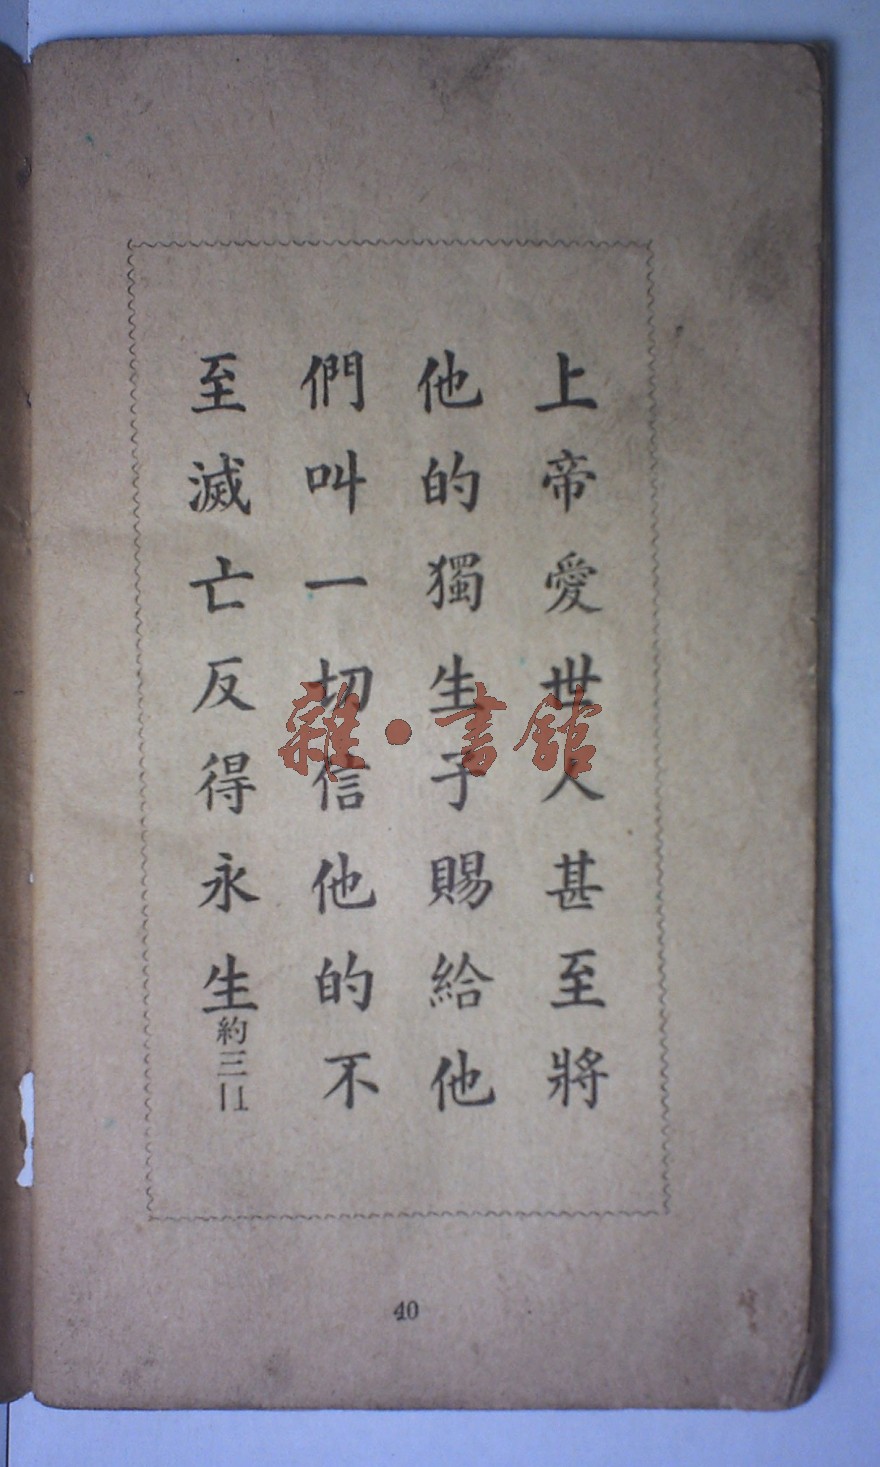 上帝愛世人甚至將
他的獨生子賜給他
們叫一切信他的不
至滅亡反得永生約三
雜·書館
40